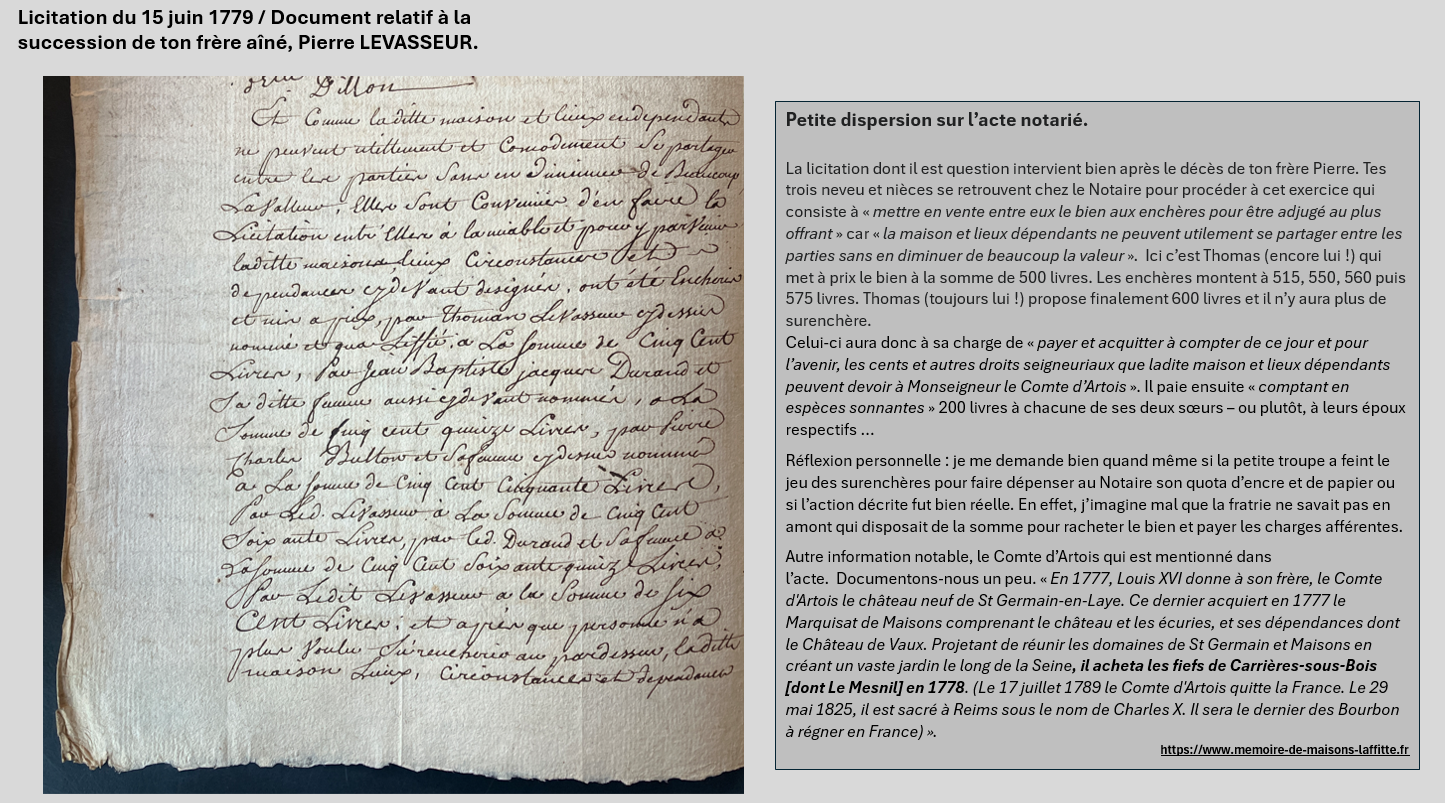 Licitation du 15 juin 1779 / Document relatif à la
succession de ton frère aîné, Pierre LEVASSEUR.
Dillon
Et Comme laditte maison et lieux endependants
ne peuvent utillement et Comodement Se partager
entre les parties Sans en Diminuer de Beaucoup
La Valleur, Elles Sont Convenües d'en faire la
Licitation entr'Elles à lamiable et pour y parvenir
laditte maison, lieux Circonstances et
dependances cydevant designés, ont été Encheris
et mis a prix, par Thomas Levasseur cydessus
nommé et qua à La Somme de Cinq Cent
Livres, Par Jean Baptiste jacques Durand et
Sa ditte femme aussi cydevant nommés, a La
Somme de Cinq cent quinze Livres, par Pierre
Charles Button et Safemme cydessus nommés
a La Somme de Cinq Cent Cinquante Livres,
Par Led. Levasseur à La Somme de Cinq Cent
Soixante Livres, par led. Durand et Safemme à
La Somme de Cinq Cent Soixante quinze Livres,
Par Ledit Levasseur a la Somme de Six
Cent Livres; et après que personne n'a
plus Voulu Surencherir au pardessus, laditte
maison Lieux, Circonstances et dependances
Petite dispersion sur l’acte notarié.
La licitation dont il est question intervient bien après le décès de ton frère Pierre. Tes
trois neveu et nièces se retrouvent chez le Notaire pour procéder à cet exercice qui
consiste à « mettre en vente entre eux le bien aux enchères pour être adjugé au plus
offrant » car « la maison et lieux dépendants ne peuvent utilement se partager entre les
parties sans en diminuer de beaucoup la valeur ». Ici c’est Thomas (encore lui !) qui
met à prix le bien à la somme de 500 livres. Les enchères montent à 515, 550, 560 puis
575 livres. Thomas (toujours lui !) propose finalement 600 livres et il n’y aura plus de
surenchère.
Celui-ci aura donc à sa charge de « payer et acquitter à compter de ce jour et pour
l’avenir, les cents et autres droits seigneuriaux que ladite maison et lieux dépendants
peuvent devoir à Monseigneur le Comte d’Artois ». Il paie ensuite « comptant en
espèces sonnantes » 200 livres à chacune de ses deux sœurs – ou plutôt, à leurs époux
respectifs …
Réflexion personnelle : je me demande bien quand même si la petite troupe a feint le
jeu des surenchères pour faire dépenser au Notaire son quota d’encre et de papier ou
si l’action décrite fut bien réelle. En effet, j’imagine mal que la fratrie ne savait pas en
amont qui disposait de la somme pour racheter le bien et payer les charges afférentes.
Autre information notable, le Comte d’Artois qui est mentionné dans
l’acte. Documentons-nous un peu. « En 1777, Louis XVI donne à son frère, le Comte
d'Artois le château neuf de St Germain-en-Laye. Ce dernier acquiert en 1777 le
Marquisat de Maisons comprenant le château et les écuries, et ses dépendances dont
le Château de Vaux. Projetant de réunir les domaines de St Germain et Maisons en
créant un vaste jardin le long de la Seine, il acheta les fiefs de Carrières-sous-Bois
[dont Le Mesnil] en 1778. (Le 17 juillet 1789 le Comte d'Artois quitte la France. Le 29
mai 1825, il est sacré à Reims sous le nom de Charles X. Il sera le dernier des Bourbon
à régner en France) ».
https://www.memoire-de-maisons-laffitte.fr